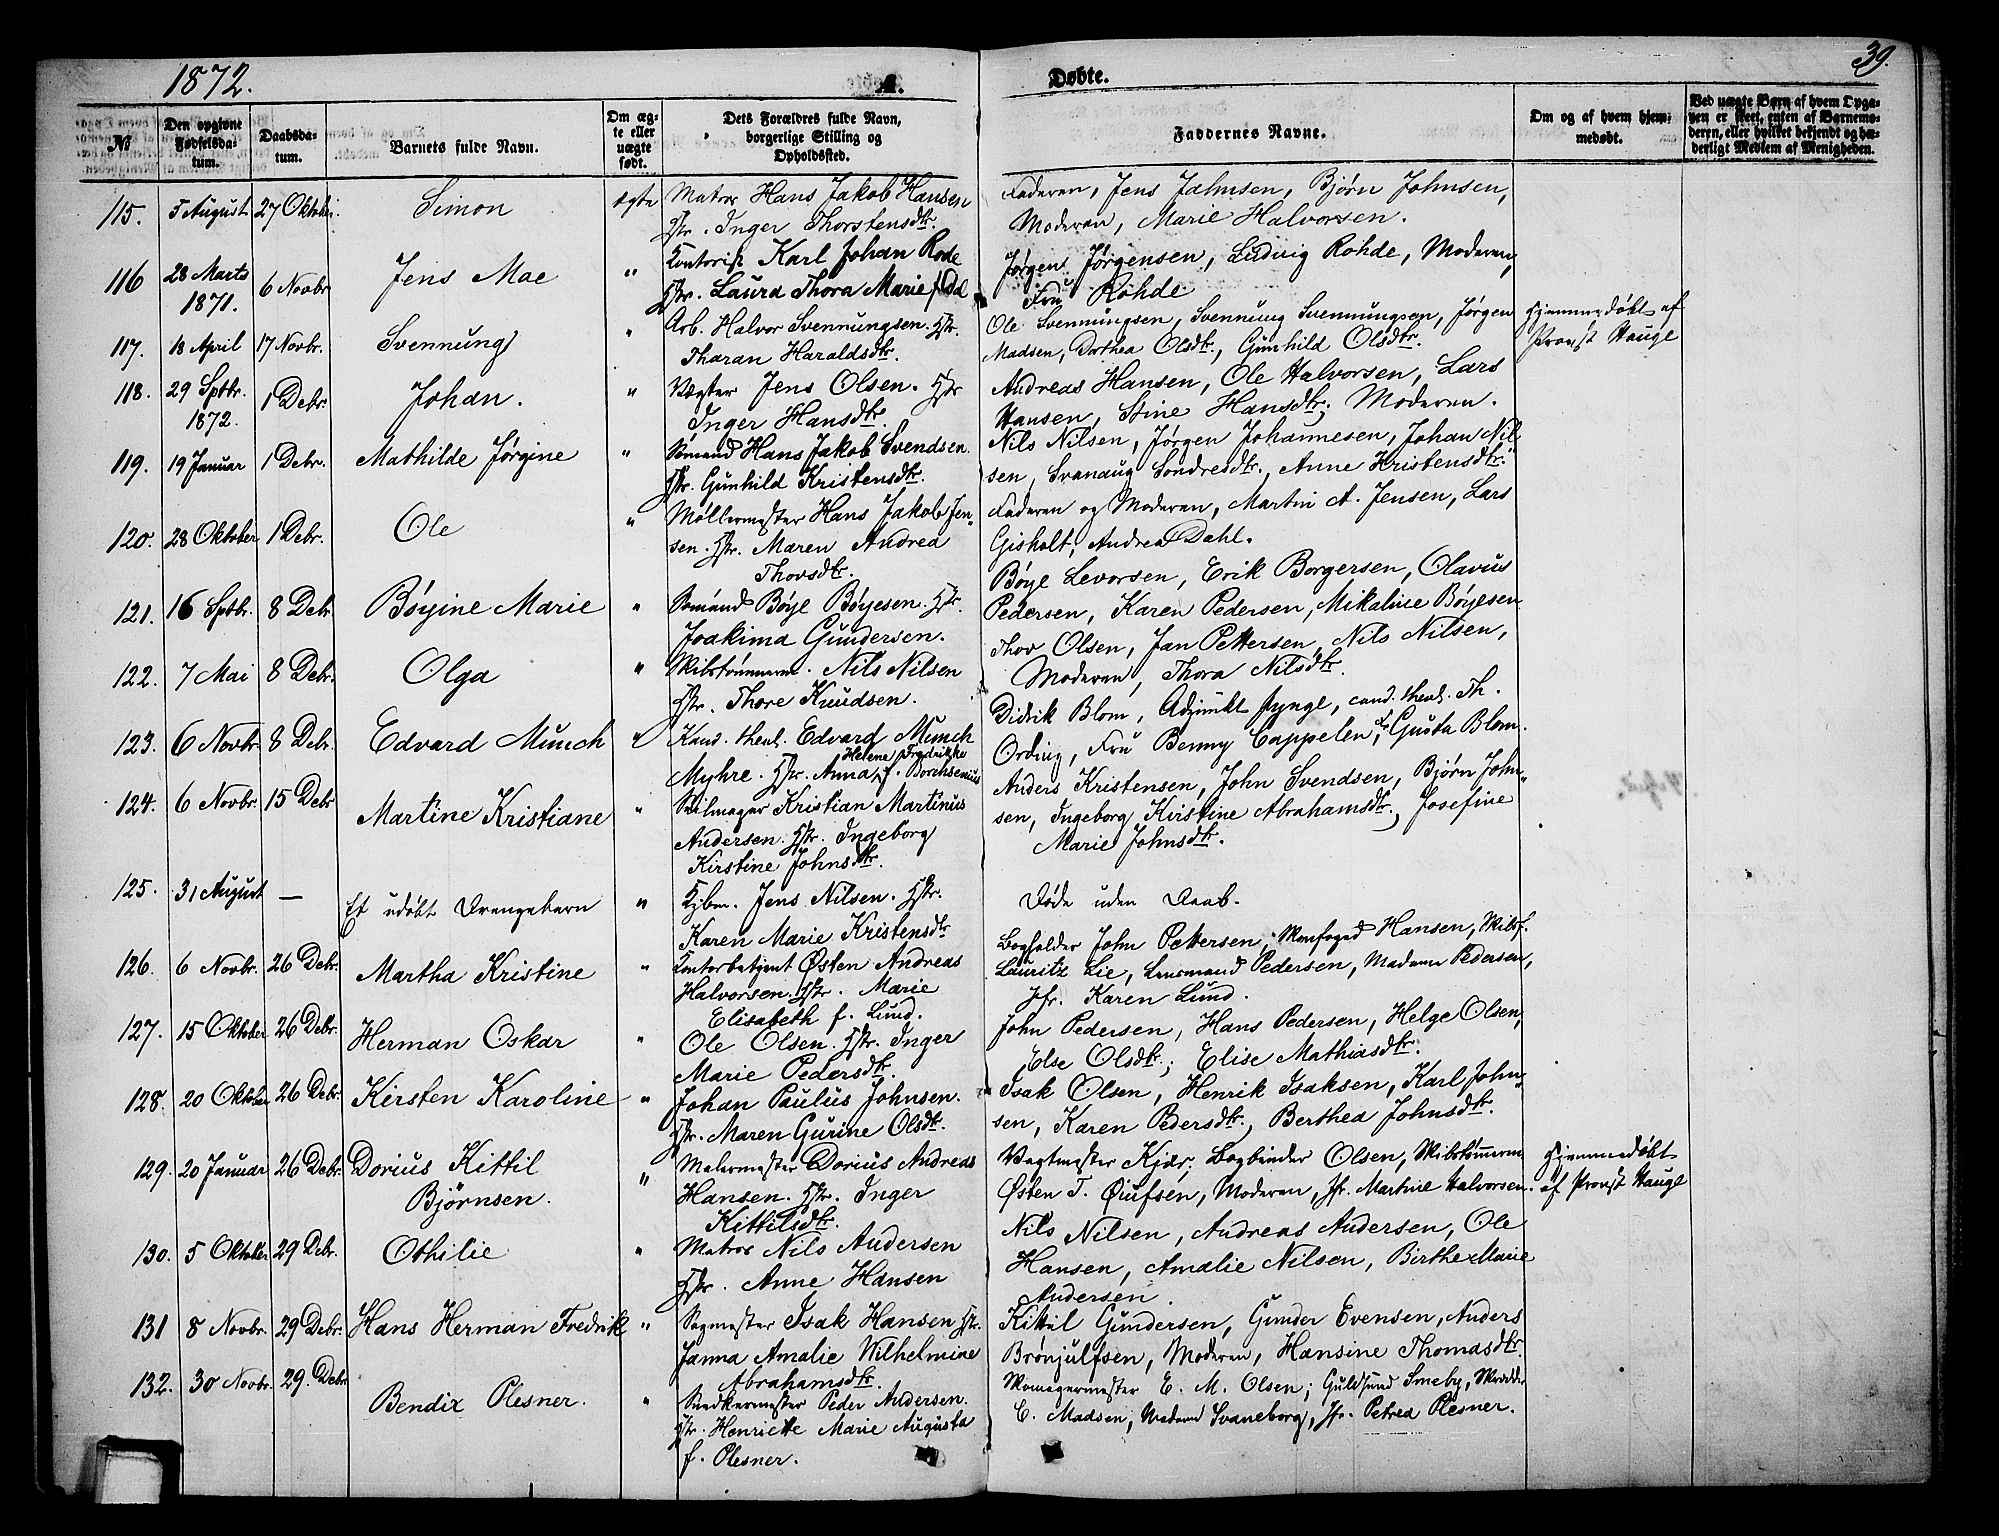 1872.
A.
Døbte.
39.
№
Den opgivne Fødselsdatum.
Daabsdatum.
Barnets fulde Navn.
Om ægte eller uægte født.
Dets Forældres fulde Navn, borgerlige Stilling og Opholdssted.
Faddernes Navne.
Om og af hvem hjemmedøbt.
Ved uægte Børn af hvem Opgaven er skeet, enten af Barnemoderen, eller hvilket bekjendt og hæderligt Medlem af Menigheden.
115. 5 August 27 Oktober. Simon ægte Matros Hans Jakob Hansen
Hstr. Inger Thorstensdtr.
Faderen, Jens Jahnsen, Bjørn Johnsen,
Moderen, Marie Halvorsen.
116 28 Marts 1871. 6 Novbr. Jens Mae " Kontorist Karl Johan Rode
Hstr. Laura Thora Marie f. Dal
Jørgen Jørgensen, Ludvig Rohde, Moderen,
Fru Rohde
117. 18 April 17 Novbr. Svennung " Arb. Halvor Svennungsen. Hstr.
Tharan Haraldsdtr.
Ole Svennungsen, Svennung Svennungsen, Jørgen
Madsen, Dorthea Olsdtr., Gunhild Olsdtr.
Hjemmedøbt af
Provst Hauge
118. 29 Sptbr. 1872. 1 Debr. Johan. " Vægter Jens Olsen. Hstr
Inger Hansdtr.
Andreas Hansen, Ole Halvorsen, Lars
Hansen, Stine Hansdtr; Moderen.
119. 19 Januar 1 Debr. Mathilde Jørgine " Sømand Hans Jakob Svendsen.
Hstr. Gunhild Kristensdtr.
Nils Nilsen, Jørgen Johannesen, Johan Nil
sen, Svanaug Sondresdtr., Anne Kristensdtr.
120. 28 Oktober 1 Debr. Ole " Møllermester Hans Jakob Jen-
sen. Hstr. Maren Andrea
Thovsdtr.
Faderen og Moderen, Martin A. Jensen, Lars
Gisholt, Andrea Dahl.
121. 16 Sptbr. 8 Debr Bøyine Marie " Sømand Bøye Bøyesen. Hstr.
Joakima Gundersen.
Bøye Levorsen, Erik Borgersen, Olavus
Pedersen, Karen Pedersen, Mikaline Bøyesen
122. 7 Mai 8 Debr. Olga " Skibstømmerm. Nils Nilsen
Hstr. Thore Knudsen.
Thov Olsen, Jan Pettersen, Nils Nilsen,
Moderen, Thora Nilsdtr.
123. 6 Novbr. 8 Debr. Edvard Munch " Kand. theol. Edvard Munch
Helene Fredrikke
Myhre. Hstr. Anna f. Borchsenius
Didrik Blom, Adjunkt Jynge, cand. theol. Th.
Ording, Fru Benny Cappelen, Gusta Blom.
124. 6 Novbr. 15 Debr Martine Kristiane " Seilmager Kristian Martinus
Andersen. Hstr. Ingeborg
Kirstine Johnsdtr.
Anders Kristensen, John Svendsen, Bjørn John-
sen, Ingeborg Kirstine Abrahamsdtr., Josefine
Marie Johnsdtr.
125. 31 August — Et udøbt Drengebarn " Kjbm. Jens Nilsen. Hstr.
Karen Marie Kristensdtr
Døde uden Daab.
126. 6 Novbr. 26 Debr. Martha Kristine " Kontorbetjent Østen Andreas
Halvorsen. Hstr. Marie
Elisabeth f. Lund.
Bogholder John Pettersen, Hansen, Skibsf.
Lauritz Lie, Lensmand Pedersen, Madam Pedersen,
Jfr. Karen Lund.
127. 15 Oktober 26 Debr. Herman Oskar " Ole Olsen. Hstr. Inger
Marie Pedersdtr.
John Pedersen, Hans Pedersen, Helge Olsen,
Else Olsdtr.; Elise Mathiasdtr.
128. 20 Oktober 26 Debr. Kirsten Karoline " Johan Paulus Johnsen.
Hstr. Maren Gurine Olsdtr.
Isak Olsen, Henrik Isaksen, Karl John-
sen, Karen Pedersdtr., Berthea Johnsdtr.
129. 20 Januar 26 Debr. Dorius Kittil
Bjørnsen. " Malermester Dorius Andreas
Hansen. Hstr. Inger
Kittilsdtr.
Vagtmester Kjær, Bogbinder Olsen, Skibstømmerm
Østen T. Øiufsen, Moderen, Jfr. Martine Halvorsen.
Hjemmedøbt
af Provst Hauge
130. 5 Oktober 29 Debr. Othilie " Matros Nils Andersen
Hstr. Anne Hansen
Nils Nilsen, Andreas Andersen, Ole
Hansen, Amalie Nilsen, Birthe Marie
Andersen.
131 8 Novbr. 29 Debr. Hans Herman Fredrik " Sagmester Isak Hansen Hstr.
Janna Amalie Wilhelmine
Abrahamsdtr.
Kittil Gundersen, Gunder Evensen, Anders
Brønjulfsen, Moderen, Hansine Thomasdtr.
132. 30 Novbr. 29. Debr Bendix Plesner. " Snedkermester Peder Andersen.
Hstr. Henriette Marie Augusta
f. Plesner.
Skomagermester E. M. Olsen; Guldsmed Smeby, Skrædder
C. Madsen, Madam Svaneborg, Jfr. Petrea Plesner.